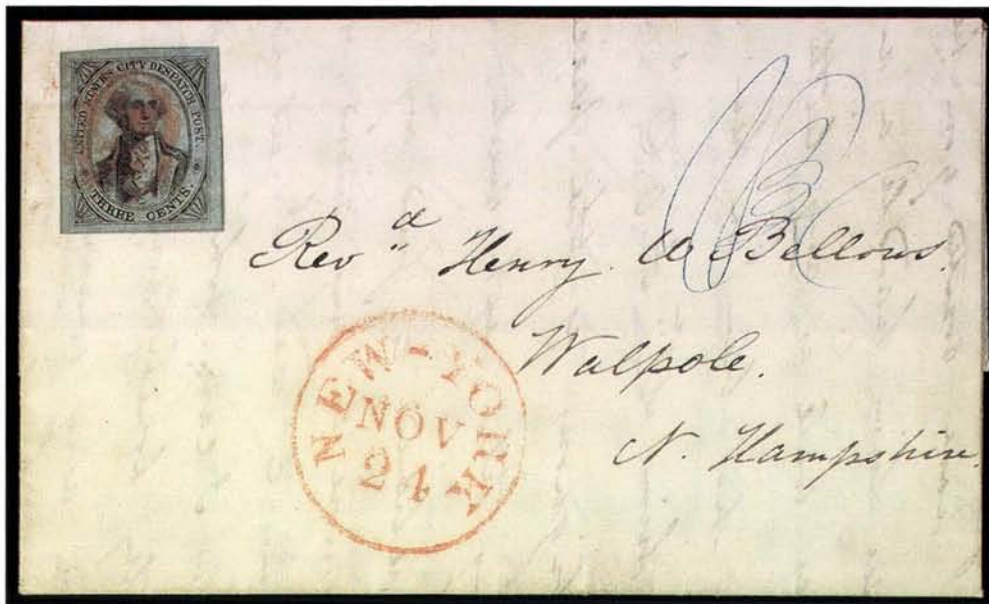 UNITED STATES CITY DESPATCH POST.
THREE CENTS.
Revd Henry W Bellows.
Walpole.
N. Hampshire.
NEW-YORK
NOV
24